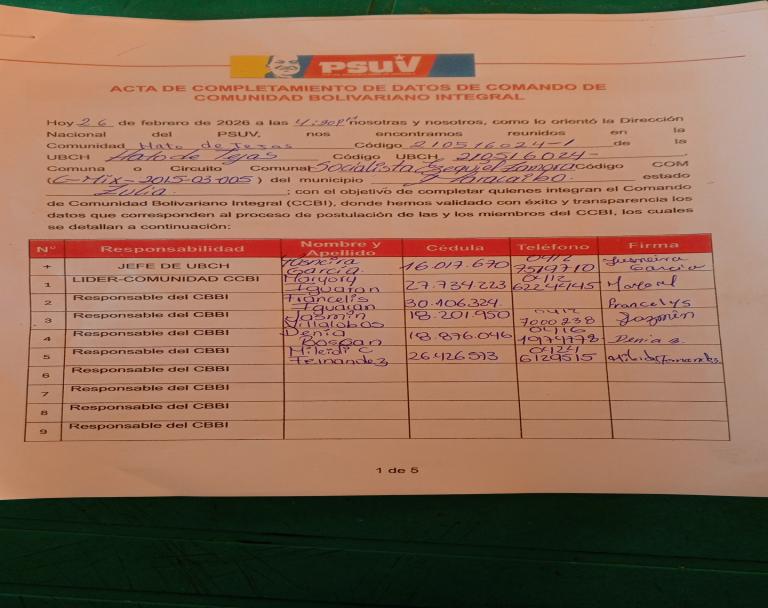 PSUV
ACTA DE COMPLETAMIENTO DE DATOS DE COMANDO DE
COMUNIDAD BOLIVARIANO INTEGRAL
Hoy 26 de febrero de 2026 a las 4:20PM nosotras y nosotros, como lo orientó la Dirección
Nacional del PSUV, nos encontramos reunidos en la
Comunidad Hato de Tejas Código 210516024-1 de la
UBCH Hato de Tejas Código UBCH 210516024-
Comuna o Circuito Comunal Socialista Ezequiel Zamora Código COM
(C-Mix-2015-03-005) del municipio Maracaibo. estado
Zulia. ; con el objetivo de completar quienes integran el Comando
de Comunidad Bolivariano Integral (CCBI), donde hemos validado con éxito y transparencia los
datos que corresponden al proceso de postulación de las y los miembros del CCBI, los cuales
se detallan a continuación:
N° Responsabilidad Nombre y Apellido Cédula Teléfono Firma
+ JEFE DE UBCH García 16.017.670 0412 7519710 García
1 LIDER-COMUNIDAD CCBI Maryory Iguaran 27.734.223 0412 6224445
2 Responsable del CBBI Francelis Iguaran 30.106.324. Francelys
3 Responsable del CBBI Jasmin Villalobos 18.201.950 0412 7000238 Jazmin
4 Responsable del CBBI Denia Boscan 18.876.046 0416 1974778 Denia B.
5 Responsable del CBBI Mileidi C Fernandez 26426573 0424 6129515
6 Responsable del CBBI
7 Responsable del CBBI
8 Responsable del CBBI
9 Responsable del CBBI
1 de 5